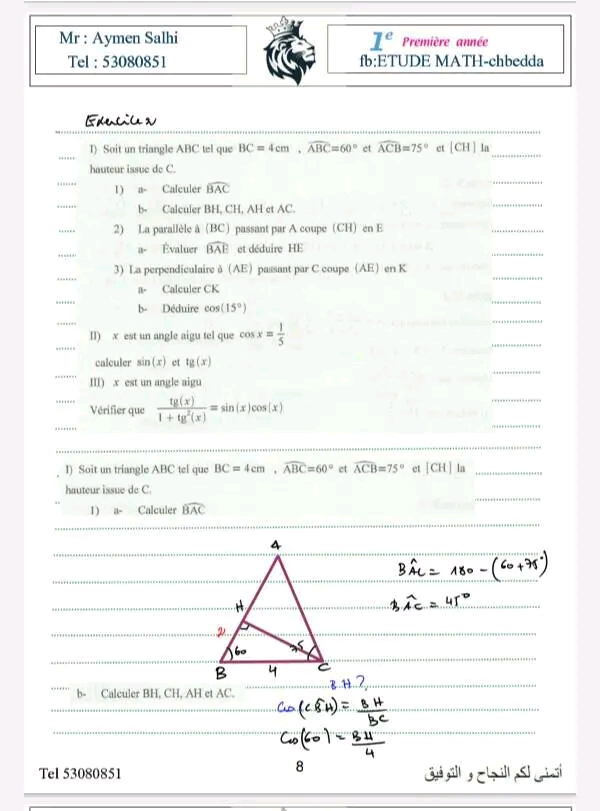 Mr : Aymen Salhi
Tel : 53080851
1e Première année
fb:ETUDE MATH-chbedda
Exercice 2
I) Soit un triangle ABC tel que BC = 4cm , ABC=60° et ACB=75° et [CH] la
hauteur issue de C.
1) a- Calculer BAC
b- Calculer BH, CH, AH et AC.
2) La parallèle à (BC) passant par A coupe (CH) en E
a- Évaluer BAE et déduire HE
3) La perpendiculaire à (AE) passant par C coupe (AE) en K
a- Calculer CK
b- Déduire cos(15°)
II) x est un angle aigu tel que cos x = 1/5
calculer sin(x) et tg(x)
III) x est un angle aigu
Vérifier que tg(x)/(1 + tg²(x)) = sin(x)cos(x)
I) Soit un triangle ABC tel que BC = 4cm , ABC=60° et ACB=75° et [CH] la
hauteur issue de C.
1) a- Calculer BAC
A
BÂC = 180 - (60+75°)
H
BÂC = 45°
2
60
75
B
4
C
b- Calculer BH, CH, AH et AC.
BH?
Cos(CB̂H) = BH/BC
Cos(60) = BH/4
Tel 53080851
8
أتمنى لكم النجاح و التوفيق